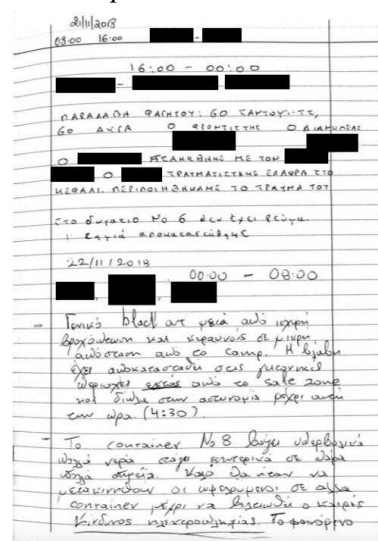 21/11/2018
08:00 16:00 -
16:00 - 00:00
-
ΠΑΡΑΛΑΒΗ ΦΑΓΗΤΟΥ: 60 ΣΑΝΤΟΥΙΤΣ,
60 ΑΥΓΑ Ο ΦΡΟΝΤΙΣΤΗΣ Ο ΔΙΑΝΟΜΕΑΣ
Ο ΜΕ ΤΟΝ
Ο ΕΛΑΦΡΑ ΣΤΟ
ΚΕΦΑΛΙ. ΠΕΡΙΠΟΙΗΘΗΚΑΜΕ ΤΟ ΤΡΑΥΜΑ ΤΟΥ
Στο δωμάτιο Νο 6 δεν έχει ρεύμα.
αποκαταστάθηκε
22/11/2018
00:00 - 08:00
- Γενικό black out μετά από ισχυρή
βροχόπτωση και κεραυνούς σε μικρή
απόσταση από το camp. Η βλάβη
έχει αποκατασταθεί στις
περιοχές εκτός από το safe zone
και δίπλα στην αστυνομία μέχρι αυτή
την ώρα. (4:30).
- Το container Νο 8 βάζει υπερβολικά
πολλά νερά στο εσωτερικό σε πάρα
πολλά σημεία. Καλό θα ήταν να
μετακινηθούν οι ωφελούμενοι σε άλλα
container μέχρι να βελτιωθεί ο καιρός
Κίνδυνος ηλεκτροπληξίας. Το φαινόμενο